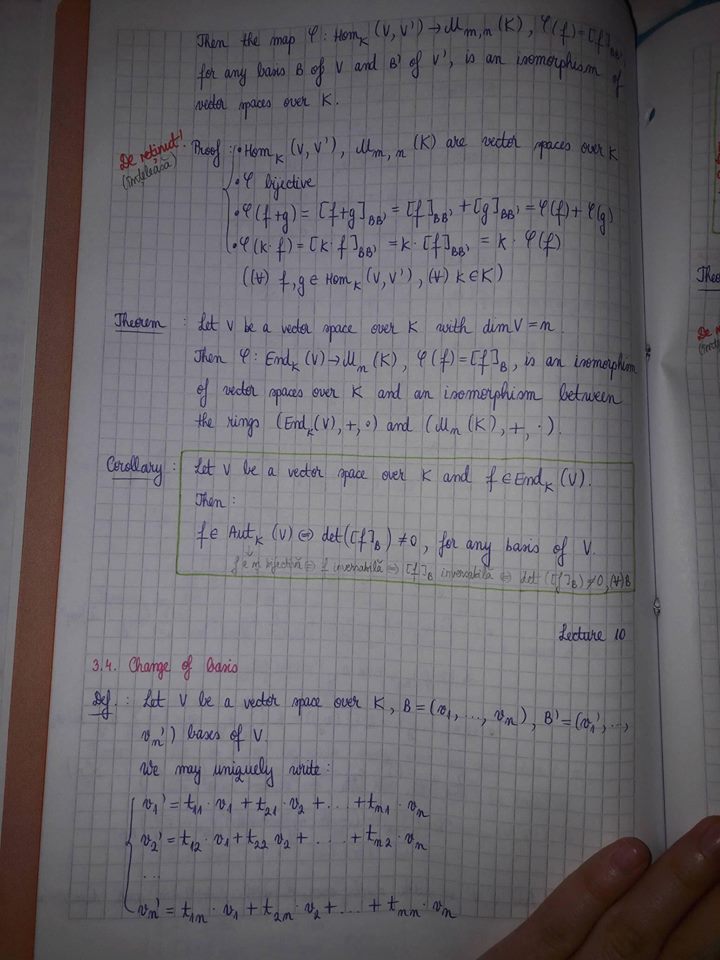 Then the map φ : Hom_K (V, V') → M_{m,n} (K), φ(f) = [f]_{BB'}
for any basis B of V and B' of V', is an isomorphism of
vector spaces over K.
De reținut!
(înțeleasă)
Proof : • Hom_K (V, V'), M_{m,n} (K) are vector spaces over K
• φ bijective
• φ(f+g) = [f+g]_{BB'} = [f]_{BB'} + [g]_{BB'} = φ(f) + φ(g)
• φ(k·f) = [k·f]_{BB'} = k·[f]_{BB'} = k · φ(f)
((∀) f, g ∈ Hom_K (V, V'), (∀) k ∈ K)
Theorem : Let V be a vector space over K with dim V = n.
Then φ : End_K (V) → M_n (K), φ(f) = [f]_B, is an isomorphism
of vector spaces over K and an isomorphism between
the rings (End_K (V), +, ∘) and (M_n (K), +, ·).
Corollary : Let V be a vector space over K and f ∈ End_K (V).
Then :
f ∈ Aut_K (V) ⇔ det([f]_B) ≠ 0, for any basis of V.
bijectivă ⇔ f inversabilă ⇔ [f]_B inversabilă ⇔ det ([f]_B) ≠ 0, (∀) B
Lecture 10
3.4. Change of basis
Def. : Let V be a vector space over K, B = (v_1, ..., v_n), B' = (v_1', ...,
v_n') bases of V.
We may uniquely write :
v_1' = t_{11} · v_1 + t_{21} · v_2 + ... + t_{n1} · v_n
v_2' = t_{12} · v_1 + t_{22} v_2 + .... + t_{n2} · v_n
...
v_n' = t_{1n} · v_1 + t_{2n} · v_2 + .... + t_{nn} · v_n